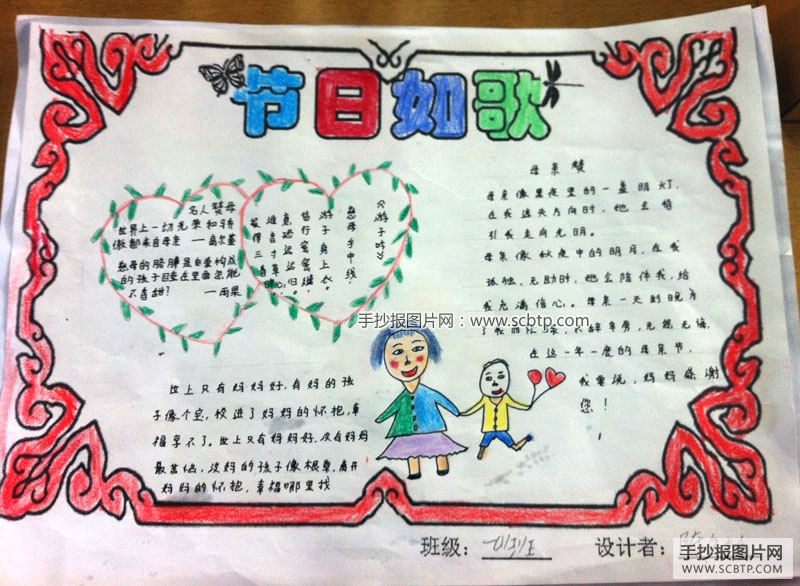 节日如歌
名人赞母
世界上一切光荣和骄
傲都来自母亲 ——高尔基
慈母的胳膊是由爱构成
的孩子睡在里面怎能
不香甜? ——雨果
《游子吟》
慈母手中线,
游子身上衣。
临行密密缝,
意恐迟迟归。
谁言寸草心,
报得三春晖。
母亲赞
母亲像黑夜里的一盏明灯,
在我迷失方向时,她主动
引我走向光明。
母亲像秋夜中的明月,在我
孤独、无助时,她会陪伴我,给
我充满信心。母亲一天到晚为
了我而忙碌,不辞辛劳,无怨无悔。
在这一年一度的母亲节,
我要说,妈妈感谢
您!
世上只有妈妈好,有妈的孩
子像个宝,投进了妈妈的怀抱,幸
福享不了。世上只有妈妈好,没有妈妈
最苦恼,没妈的孩子像根草,离开
妈妈的怀抱,幸福哪里找
手抄报图片网:www.scbtp.com
班级:
设计者:
手抄报图片网
WWW.SCBTP.COM